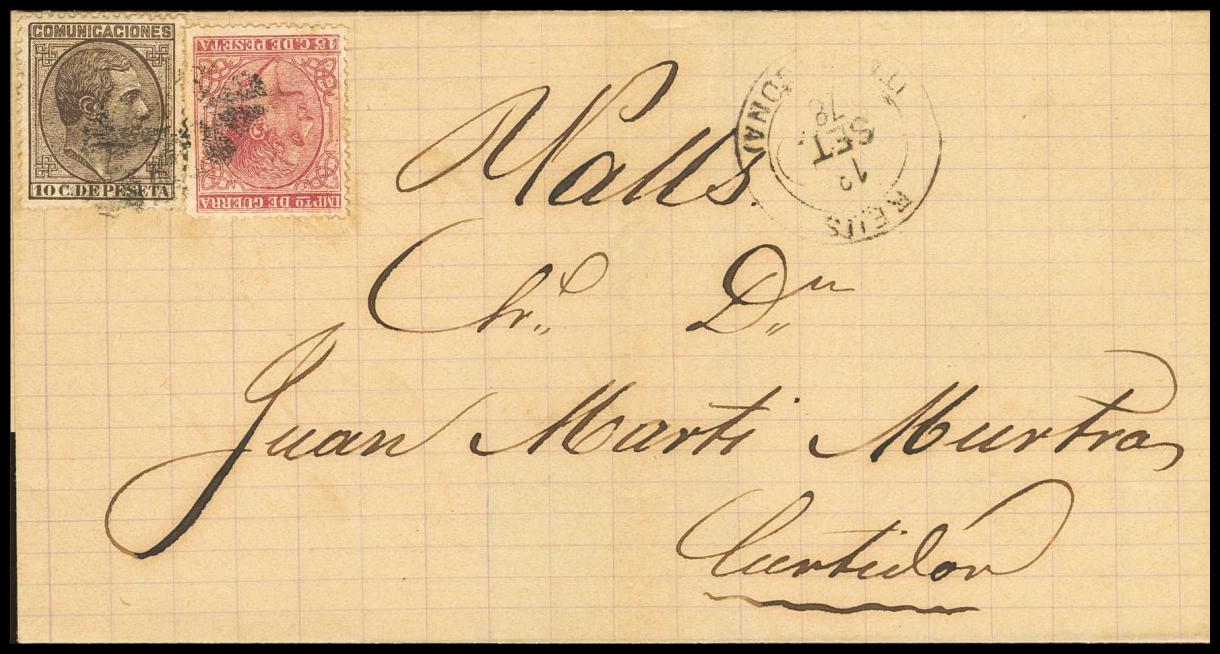 COMUNICACIONES
10 C. DE PESETA
15 C. DE PESETA
IMPTO DE GUERRA
REUS
12
SET
78
Valls.
Sr. Dn
Juan Marti Murtra
Curtidor